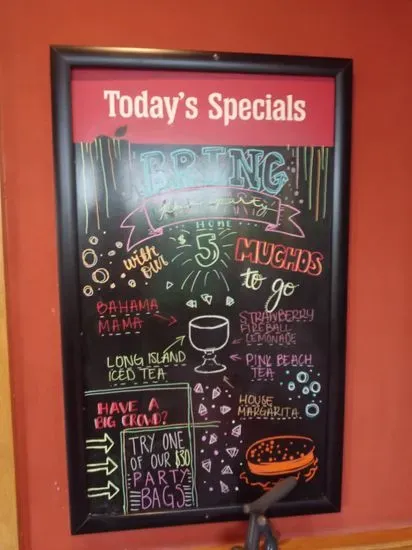 Today's Specials
BRING
the party
HOME
with our
$5
MUCHOS
to go
BAHAMA
MAMA
STRAWBERRY
FIREBALL
LEMONADE
LONG ISLAND
ICED TEA
PINK BEACH
TEA
HOUSE
MARGARITA
HAVE A
BIG CROWD?
TRY ONE
OF OUR $30
PARTY
BAGS